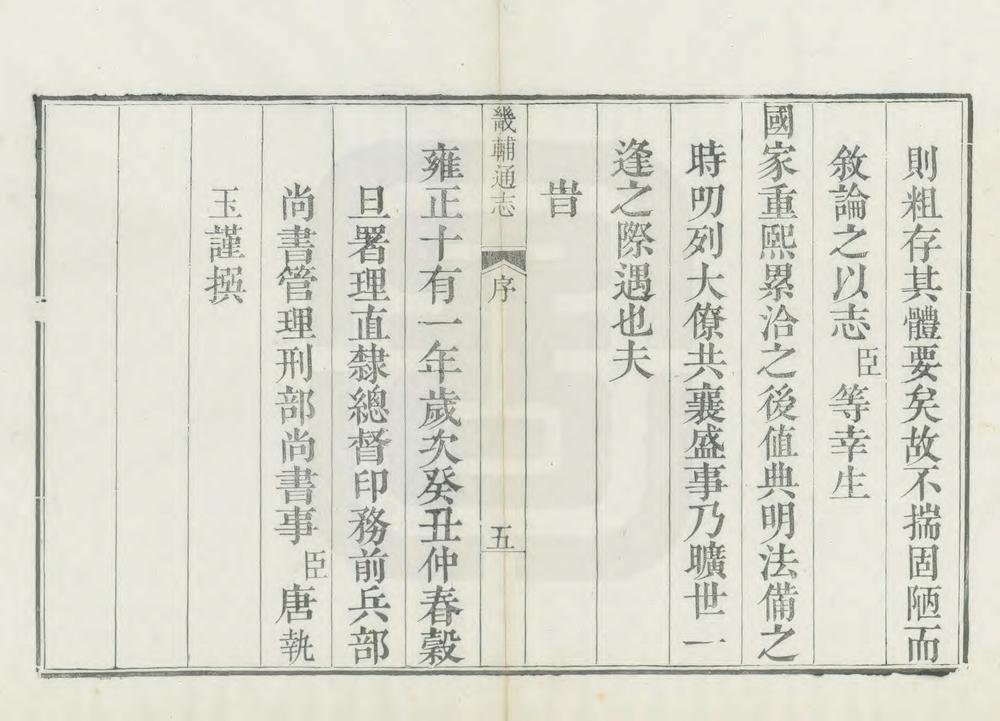 則粗存其體要矣故不揣固陋而
敘論之以志臣等幸生
國家重熙累洽之後值典明法備之
時叨列大僚共襄盛事乃曠世一
逢之際遇也夫
旹
畿輔通志 序 五
雍正十有一年歲次癸丑仲春穀
旦署理直隸總督印務前兵部
尚書管理刑部尚書事臣唐執
玉謹撰